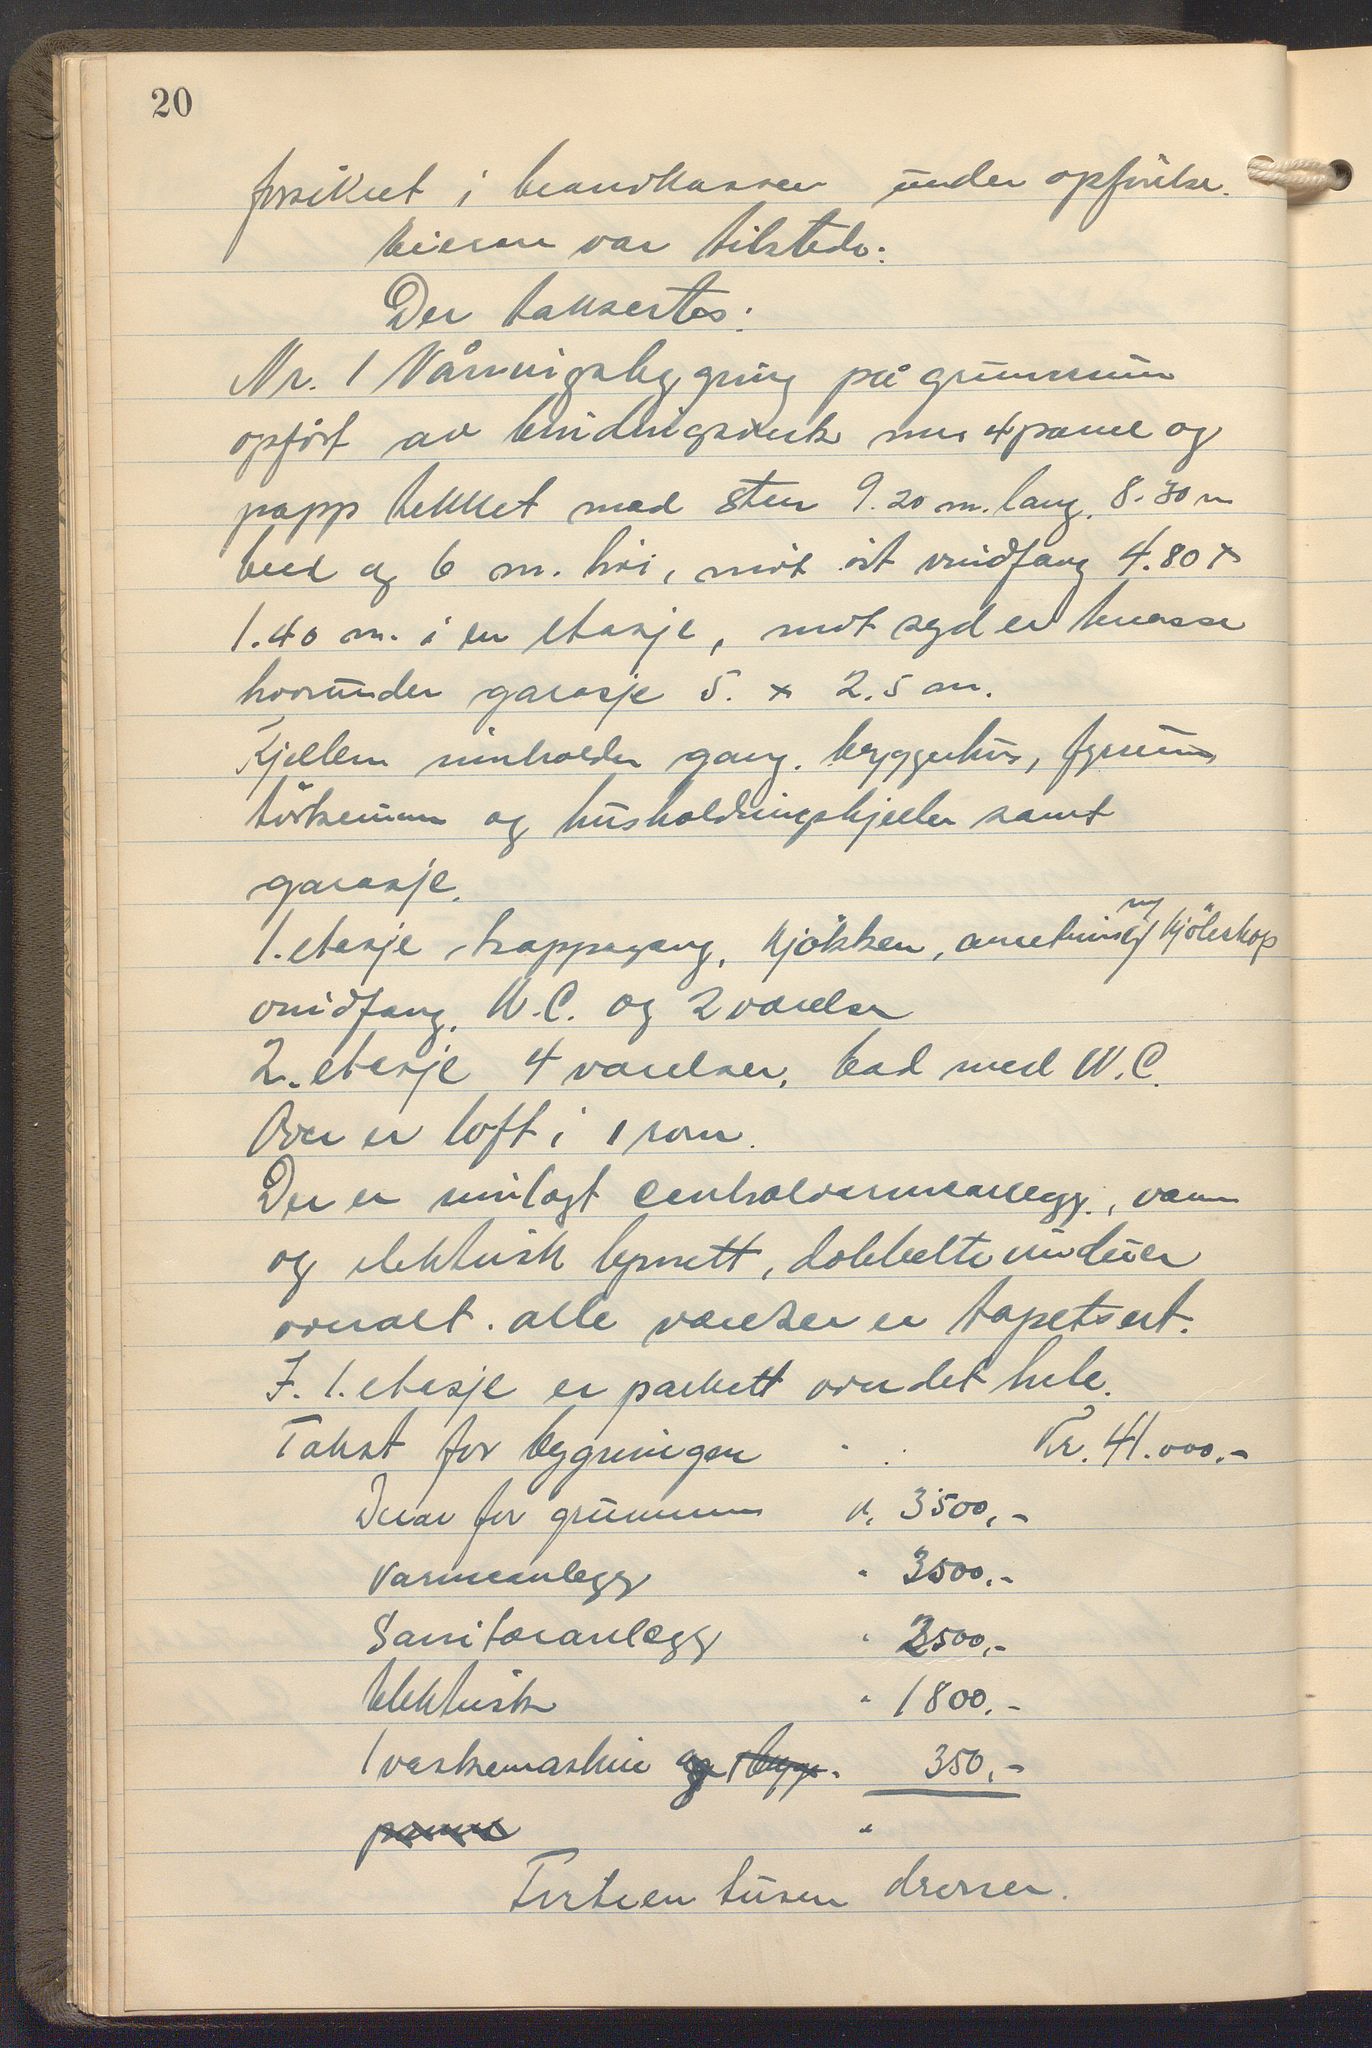 20
forsikret i brandkassen under opførelse.
Eieren var tilstede.
Der taksertes:
Nr. 1 Våningsbygning på grunnmur
opført av bindingsverk m. 4 panel og
papp tekket med sten 9.20 m. lang, 8.30 m
bred og 6 m. høi, mot øst vindfang 4.80 x
1.40 m. i en etasje, mot syd er terasse
hvorunder garasje 5. x 2.5 m.
Kjelleren innholder gang, bryggerhus, fyrrum,
tørkerum og husholdningskjeller samt
garasje.
1. etasje trappegang, kjøkken, anretning m/ kjøleskap
vindfang, W.C. og 2 værelser
2. etasje 4 værelser, bad med W.C.
Over er loft i 1 rom.
Der er innlagt centralvarmeanlegg, vann
og elektrisk lysnett, dobbelte vinduer
overalt. alle værelser er tapetsert.
I. 1. etasje er parkett over det hele.
Takst for bygningen Kr. 41.000.-
Derav for grunnmur kr. 3500,-
Varmeanlegg " 3500.-
Sanitæranlegg " 2500,-
Elektrisk " 1800.-
1 vaskemaskin og 1 brygge- 350,-
panne "
Firtien tusen kroner.